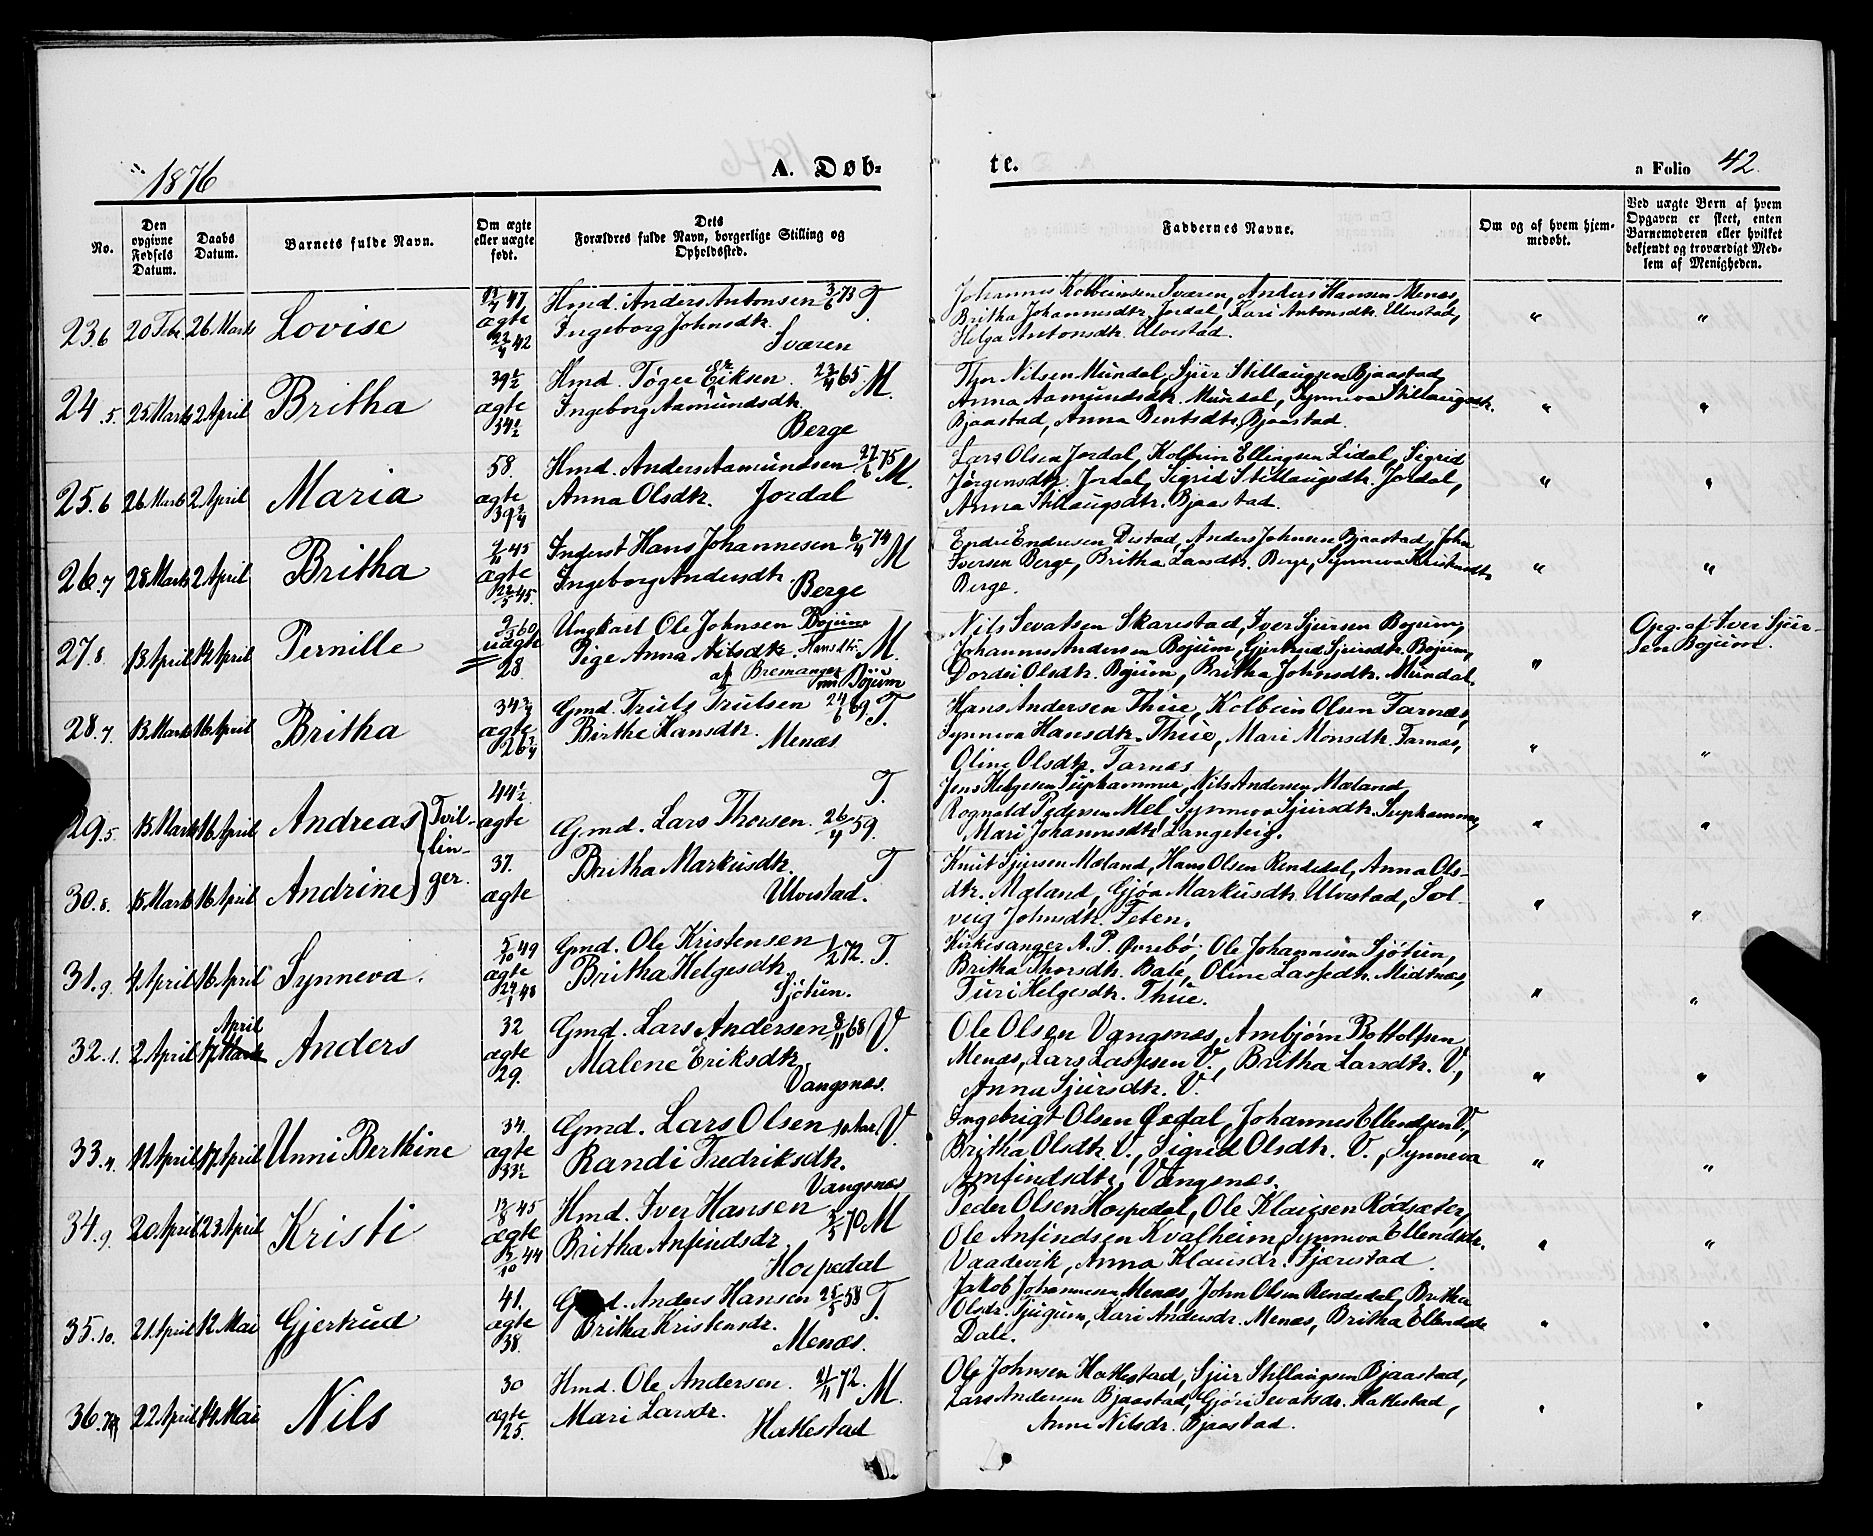 1876
A. Døb=
te.
a Folio 42.
No.
Den opgivne Fødsels Datum.
Daabs Datum.
Barnets fulde Navn.
Om ægte eller uægte født.
Dets Forældres fulde Navn, borgerlige Stilling og Opholdssted.
Faddernes Navne.
Om og af hvem hjemmedøbt.
Ved uægte Børn af hvem Opgaven er skeet, enten Barnemoderen eller hvilket bekjendt og troværdigt Medlem af Menigheden.
23.6 20 Febr. 26 Marts Lovise
ægte
Hmd. Anders Antonsen 3/6 73 T.
Ingeborg Johnsdtr.
Sværen
Johannes Kolbeinsen Sværen, Anders Hansen Menæs,
Britha Johannesdtr. Jordal, Kari Antonsdtr. Ulvestad,
Helga Antonsdtr. Ulvestad.
" "
24.5 25 Marts 2 April Britha
39 1/2
ægte
34 1/2
Hmd. Tøger Eriksen. 23/4 65. M.
Ingeborg Aamundsdtr.
Berge
Thor Nilsen Mundal, Sjur Stillaugsen Bjaastad,
Anna Aamundsdtr. Mundal, Synneva Stillaugsdtr.
Bjaastad, Anna Bentsdtr. Bjaastad.
" "
25.6 26 Marts 2 April Maria
58.
ægte
39 3/4
Hmd. Anders Aamundsen 27/6 75 M.
Anna Olsdtr. Jordal
Lars Olsen Jordal, Kolbein Ellingsen Lidal, Sigrid
Jørgensdtr. Jordal, Sigrid Stillaugsdtr. Jordal,
Anna Stillaugsdtr. Bjaastad.
" "
26.7 28 Marts 2 April Britha
ægte
Inderst Hans Johannesen 6/4 74 M
Ingeborg Andersdtr.
Berge
Endre Endresen Distad, Anders Johnsen Bjaastad, John
Iversen Berge, Britha Larsdtr. Berge, Synneva Kristensdtr.
Berge.
" "
27.8. 13 April 14 April Pernille
uægte
28.
Ungkarl Ole Johnsen Bojum
Pige Anna Nilsdtr. Hansdtr. M.
af Bremanger
Bojum
Nils Sevatsen Skarestad, Iver Sjursen Bojum,
Johannes Andersen Bojum, Gjertrud Sjursdtr. Bojum,
Dordei Olsdtr. Bojum, Britha Johnsdtr. Mundal.
"
Opg. af Iver Sjur-
sen Bojum.
28.7. 13 Marts 16 April Britha
34 3/4
ægte
26 3/4
Gmd. Truls Trulsen 24/6 69 T.
Birthe Hansdtr.
Menæs
Hans Andersen Thue, Kolbein Olsen Farnæs,
Synneva Hansdtr. Thue, Mari Monsdtr. Farnæs,
Oline Olsdtr. Farnæs
" "
29.5 15 Marts 16 April Andreas Tvil-
44 1/2.
ægte
T.
Gmd. Lars Thorsen. 26/4 59.
Jens Helgesen Suphammer, Nils Andersen Mæland,
Rognald Pedersen Mel, Synneva Sjursdtr. Suphammer,
Mari Johannesdtr. Langeteig.
" "
lin-
ger.
30.8. 15 Marts 16 April Andrine
37.
ægte
Britha Markusdtr. T
Ulvestad.
Knut Sjursen Mæland, Hans Olsen Rendedal, Anna Ols-
dtr. Mæland, Gjøa Markusdtr. Ulvestad, Sol-
veig Johnsdtr. Feten.
" "
31.9. 4 April 16 April Synneva.
5/10 49
ægte
Gmd. Ole Kristensen 1/2 72. T.
Britha Helgesdtr.
Sjøtun.
Kirkesanger A. P. Øvrebø, Ole Johannesen Sjøtun,
Britha Thorsdtr. Bale, Oline Lassedtr. Midtnæs,
Turi Helgesdtr. Thue.
" "
April
32.1. 2 April 17 Marts Anders
32
ægte
29.
Gmd. Lars Andersen 8/11 68 V.
Malene Eriksdtr.
Vangsnæs.
Ole Olsen Vangsnæs, Ambjørn Bottolfsen
Menæs, Lars Lassesen V., Britha Larsdtr. V.,
Anna Sjursdtr. V.
" "
33.4. 11 April 17 April Unni Berthine
34.
ægte
33 1/2
Gmd. Lars Olsen 10 Aar. V.
Randi Fredriksdtr.
Vangsnæs
Ingebrigt Olsen Øvedal, Johannes Ellendsen V.,
Britha Olsdtr. V., Sigrid Olsdtr. V., Synneva
Amfindsdtr. Vangsnæs.
" "
34.9. 20 April 23 April Kristi
ægte
Hmd. Iver Hansen
Britha Anfindsdr. M
Hospedal
Peder Olsen Hospedal, Ole Klausen Rødsæter,
Ole Anfindsen Kvalheim, Synneva Ellendsdr.
Vaadevik, Anna Klausdr. Sjærestad.
" "
35.10. 21 April 12 Mai Gjertrud
41.
ægte
38.
Gmd. Anders Hansen 25/5 58 T.
Britha Kristensdr.
Menæs.
Jakob Johannesen Menæs, John Olsen Rendedal, Britha
Olsdr. Tjugum, Kari Andersdr. Menæs, Britha Ellendsdr.
Dale.
" "
36. 22 April 14 Mai Nils
30
ægte
25.
Hmd. Ole Andersen. 72. M.
Mari Larsdr.
Hatlestad
Ole Johnsen Hatlestad, Sjur Stillaugsen Bjaastad,
Lars Andersen Bjaastad, Gjøri Sevatsdr. Hatlestad,
Anna Nilsdr. Bjaastad.
" "